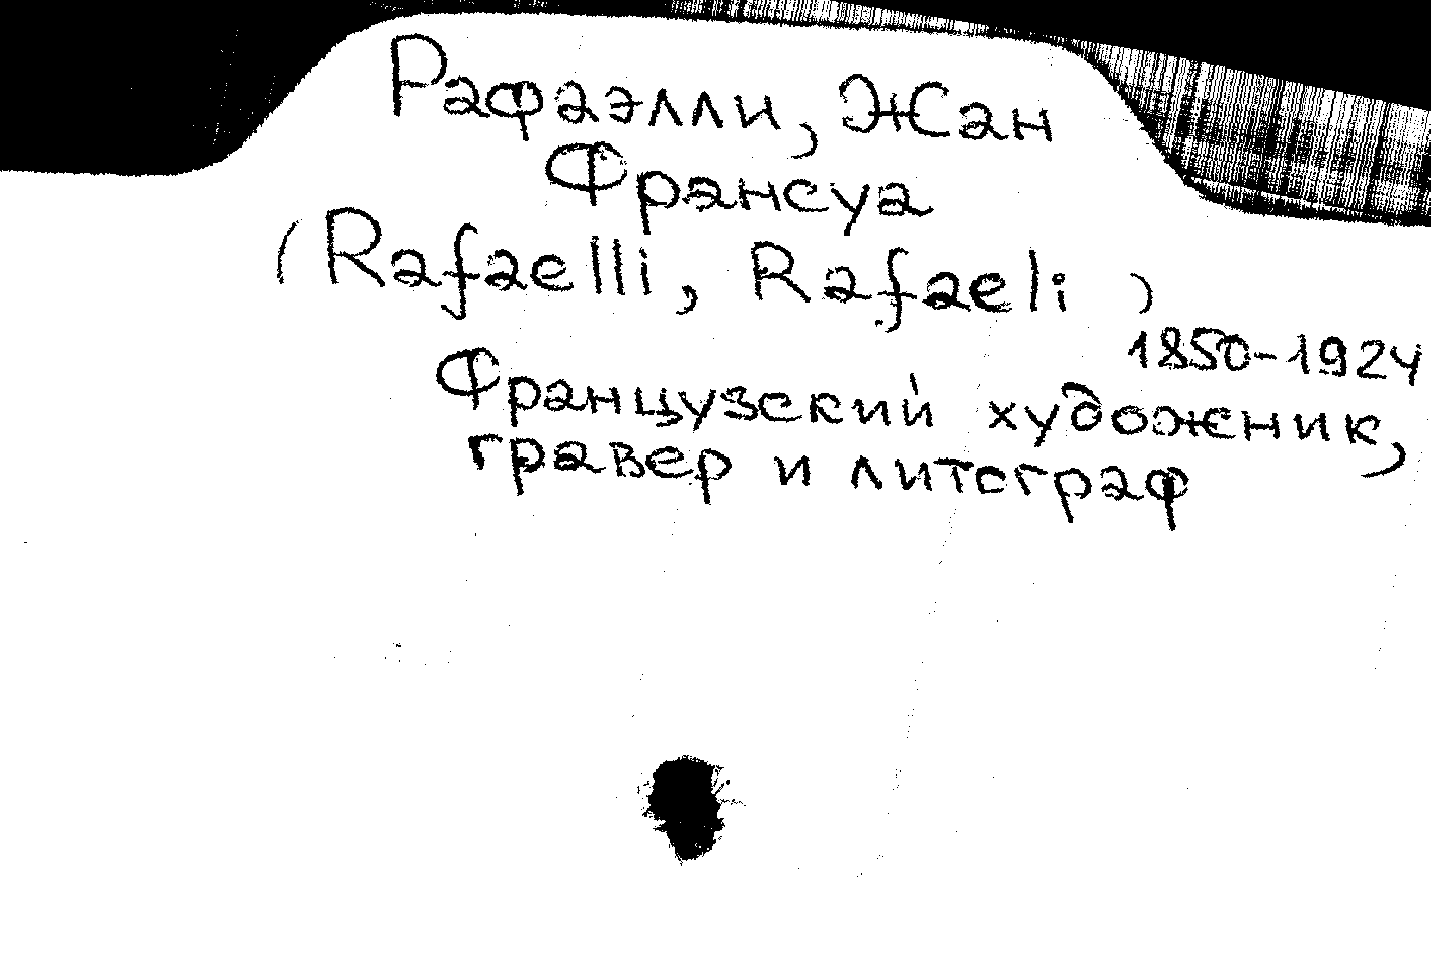 Рафаэлли, Жан
Франсуа
(Rafaelli, Rafaeli)
1850-1924
Французский художник,
гравер и литограф